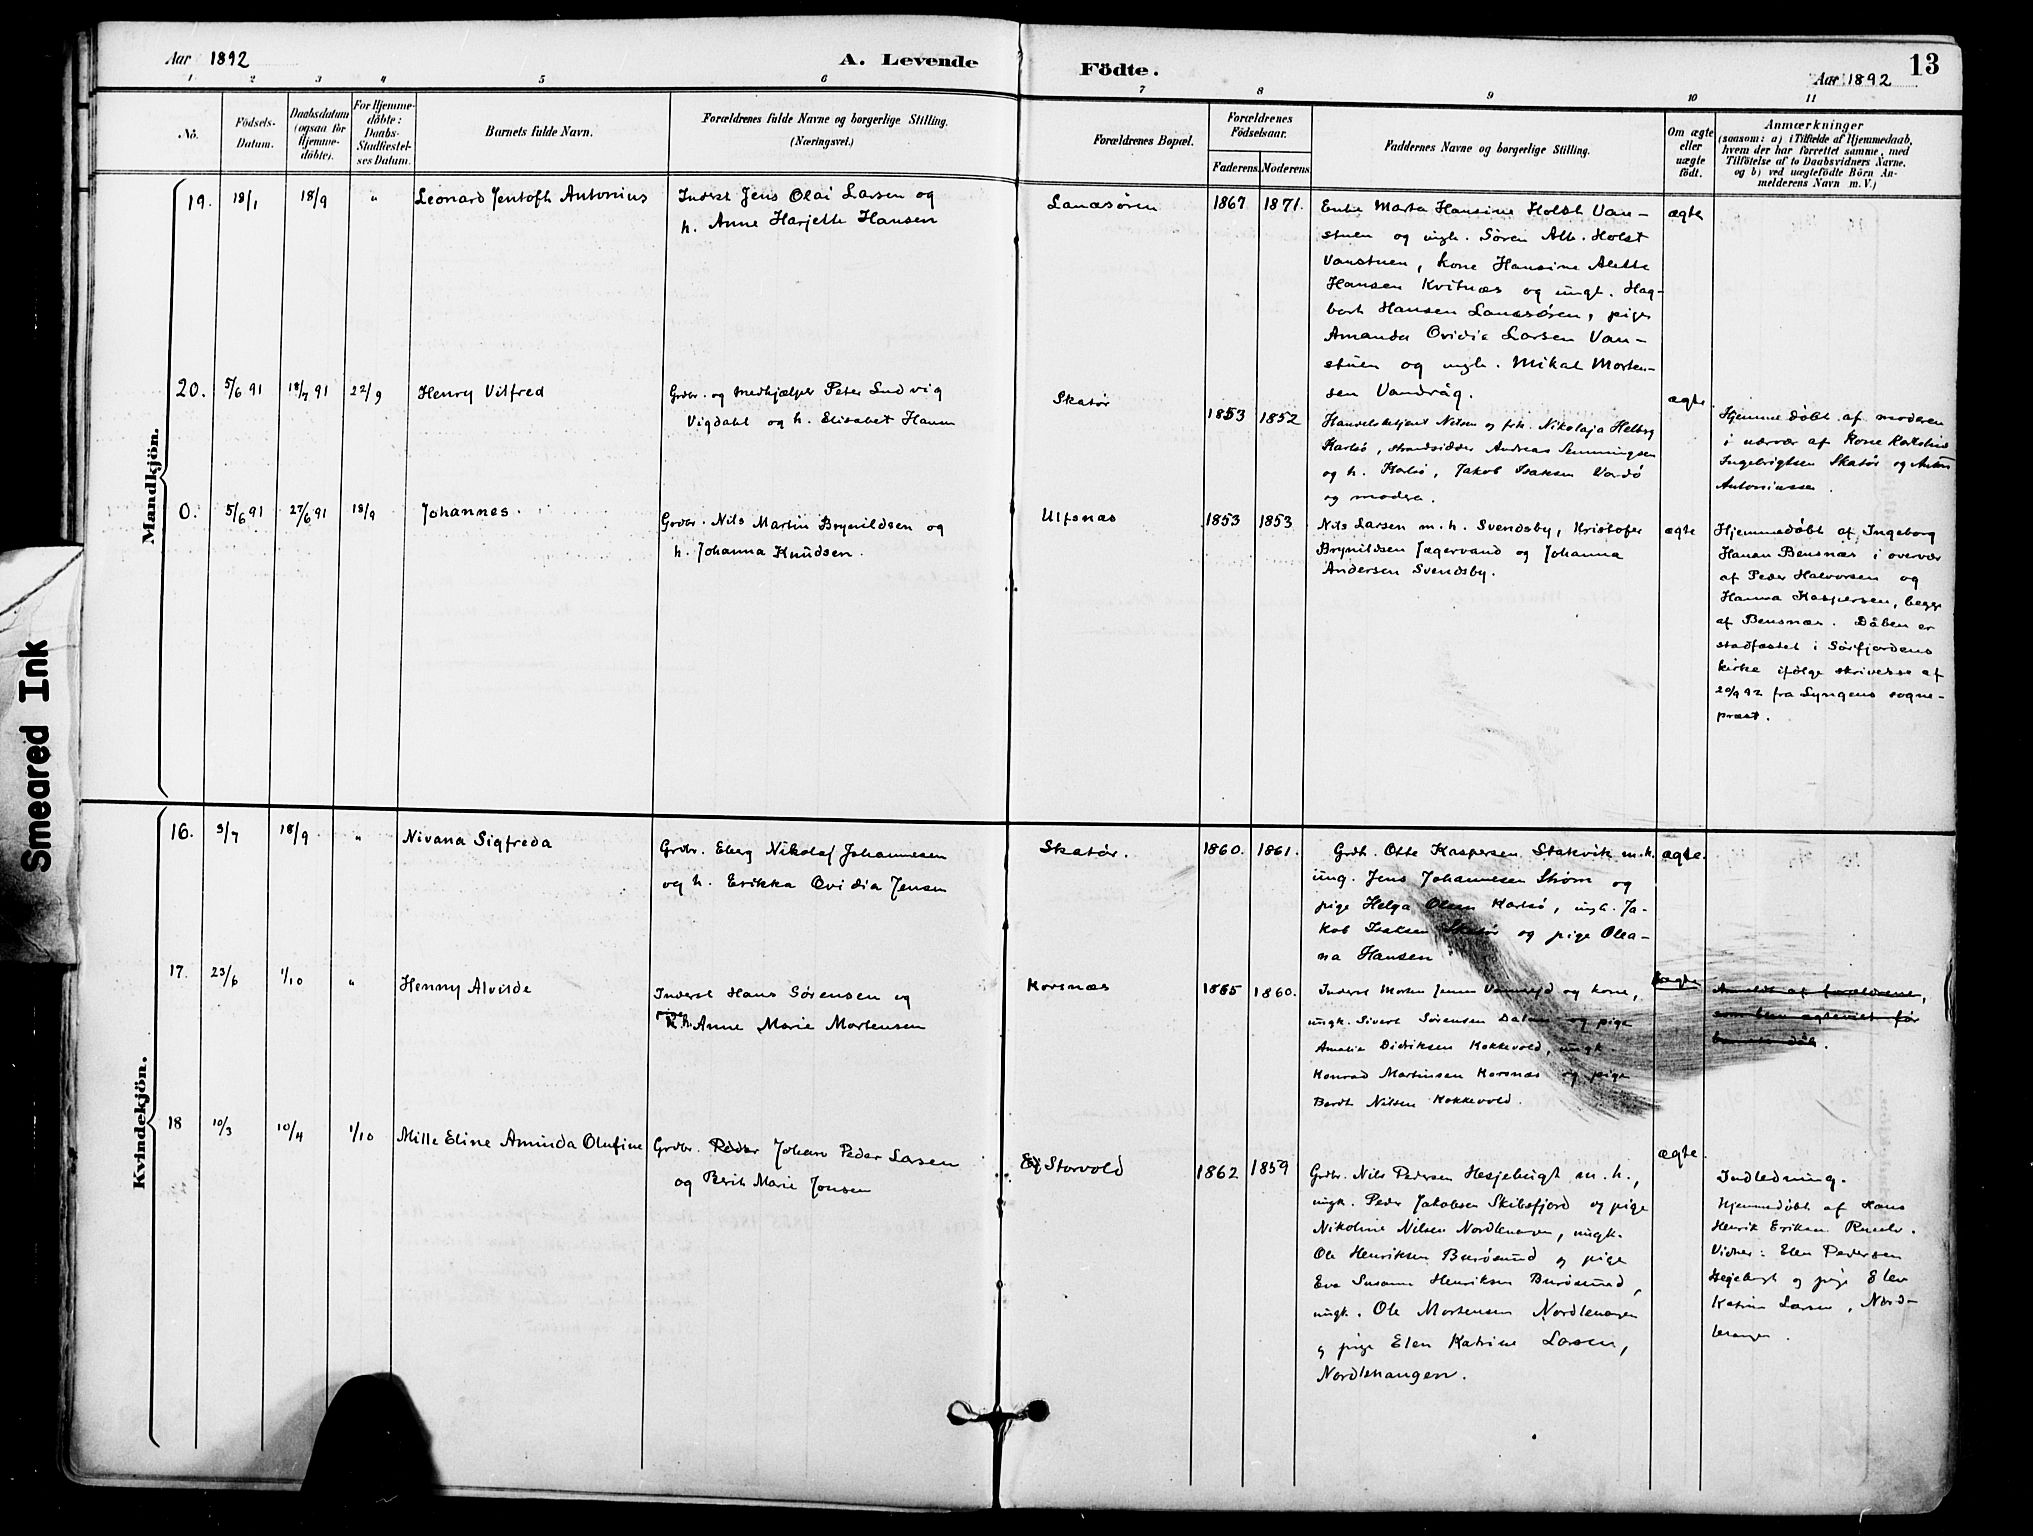 Aar 1892
A. Levende
Födte.
13
Aar 1892
1 2 3 4 5 6 7 8 9 10 11
No.
Födsels-
Datum.
Daabsdatum
(ogsaa for
Hjemme-
döbte).
For Hjemme-
döbte:
Daabs-
Stadfæstel-
ses Datum.
Barnets fulde Navn.
Forældrenes fulde Navne og borgerlige Stilling.
(Næringsvei.)
Forældrenes Bopæl.
Forældrenes
Födselsaar.
Faderens. Moderens.
Faddernes Navne og borgerlige Stilling.
Om ægte
eller
uægte
födt.
Anmærkninger
(saasom: a) i Tilfælde af Hjemmedaab,
hvem der har forrettet samme, med
Tilföielse af to Daabsvidners Navne,
og b) ved uægtefödte Börn An-
melderens Navn m. V.)
Mandkjön.
19. 18/1 18/9 " Leonard Jentoft Antonius
Inderst Jens Olai Larsen og
h. Anne Harjette Hansen
Lanæsøren
1867 1871.
Enke Marta Hansine Holst Van-
stuen og ungk. Søren Alb. Holst
Vanstuen, kone Hansine Alette
Hansen Kvitnæs og ungk. Hag-
bart Hansen Lanæsøren, pige
Amanda Ovidia Larsen Van-
stuen og ungk. Mikal Morten-
sen Vandvåg.
ægte
20. 5/6 91 18/7 91 22/9 Henry Vilfred
Grdbr. og medhjælper Peter Ludvig
Vigdahl og h. Elisabet Hansen
Skatør
1853 1852
Handelsbetjent Nilsen og frk. Nikolaja Helberg
Karlsø, strandsidder Andreas Semmingsen
og h. Karlsø, Jakob Isaksen Vardö
og modera.
ægte
Hjemmedöbt af moderen
i nærvær af kone
Ingebrigtsen Skatør og Anton
Antoniussen.
0. 5/6 91 27/6 91 18/9 Johannes.
Grdbr. Nils Martin Brynildsen og
h. Johanna Knudsen.
Ulfsnæs
1853 1853
Nils Larsen m. h. Svendsby, Kristofer
Brynildsen Jægervand og Johanna
Andersen Svendsby.
ægte
Hjemmedöbt af Ingeborg
Hansen Bensnæs i overvær
af Peder Halvorsen og
Hanna Kaspersen, begge
af Bensnæs. Dåben er
stadfæstet i Sörfjordens
kirke ifölge skrivelse af
20/9 92 fra Lyngens sogne-
præst.
Smeared Ink
Kvindekjön.
16. 3/7 18/9 " Nivana Sigfreda
Grdbr. Eberg Nikolaf Johannesen
og h. Erikka Ovidia Jensen
Skatør.
1860. 1861.
Grdb. Otte Kaspersen Stakvik m. h.
ung. Jens Johannesen Strøm og
pige Helga Olsen Karlsø, ungk. Ja-
kob Isaksen Skatør og pige Olea-
na Hansen
ægte.
17. 23/6 1/10 " Henny Alvilde
Inderst Hans Sørensen og
h. Anne Marie Mortensen
Korsnæs
1865 1860.
Inderst Morten Jensen og kone,
ungk. Sivert Sørensen og pige
Amalie Didriksen Kokkevold, ungk.
Konrad Martinsen Korsnæs og pige
Berdt Nilsen Kokkevold.
ægte
Anmeldt af forældrene,
som blev ægteviet før
barnets dåb.
18 10/3 10/4 1/10 Mille Eline Aminda Olufine
Grdbr. Peder Johan Peder Larsen
og Berit Marie Jonsen
Storvold
1862 1859
Grdbr. Nils Pedersen Hesjebugt m. h.,
ungk. Peder Jakobsen Skibsfjord og pige
Nikoline Nilsen Nordlenangen, ungk.
Ole Henriksen Burøsund og pige
Eva Susanne Henriksen Burøsund,
ungk. Ole Mortensen Nordlenangen
og pige Elen Katrine Larsen,
Nordlenangen.
ægte
Indledning.
Hjemmedøbt af Hans
Henrik Eriksen
Vidner: Elen Pedersen
Hesjebugt og pige Elen
Katrine Larsen, Nord-
lenangen.